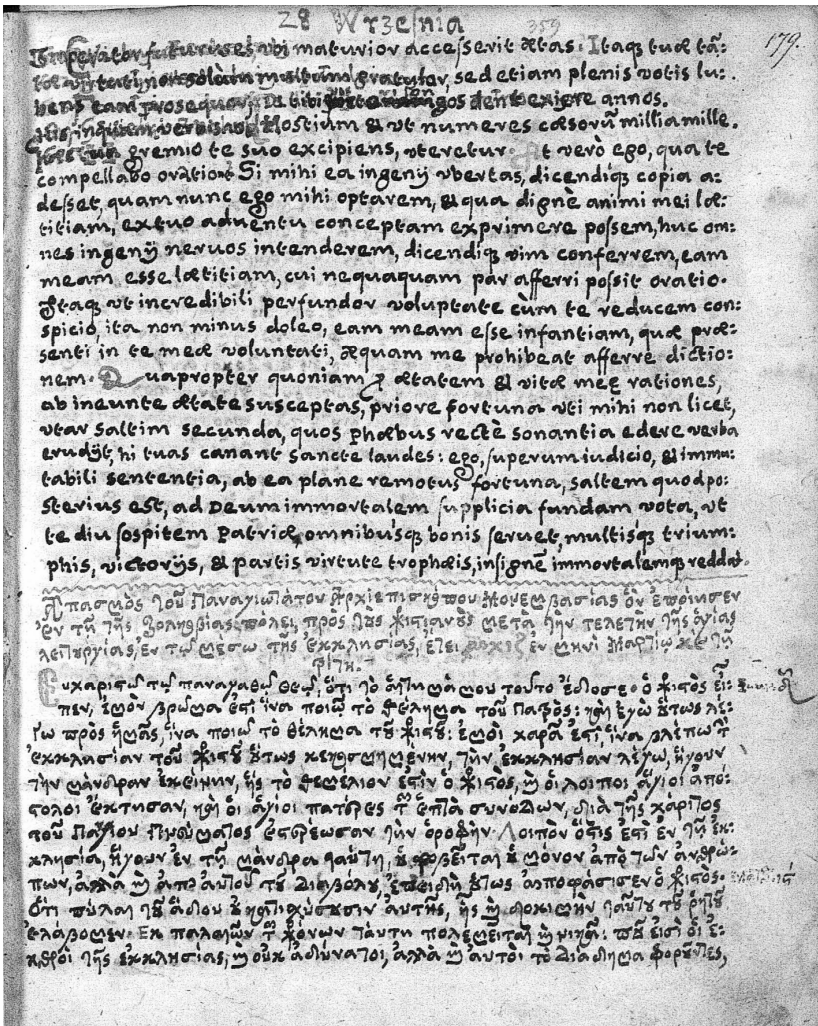 28 Wrzesnia
359
179.
Imperator futurus es, ubi maturior accesserit ætas. Itaq tuæ tã:
tæ virtuti non solùm multùm gratulor, sed etiam plenis votis lu:
bens eam prosequar, Dii tibi annos.
Hostium & vt numeres cæsorũ millia mille.
gremio te suo excipiens, vteretur. At verò ego, qua te
compellabo oratione? Si mihi ea ingenij vbertas, dicendiq copia a:
desset, quam nunc ego mihi optarem, & qua dignè animi mei læ:
titiam, ex tuo aduentu conceptam exprimere possem, huc om:
nes ingenij neruos intenderem, dicendiq vim conferrem, eam
meam esse lætitiam, cui nequaquam par afferri possit oratio.
Itaq vt incredibili perfundor voluptate cùm te reducem con:
spicio, ita non minus doleo, eam meam esse infantiam, quæ præ:
senti in te meæ voluntati, æquam me prohibeat afferre dictio:
nem. Quapropter quoniam ꝑ ætatem & vitæ meę rationes,
ab ineunte ætate susceptas, priore fortuna vti mihi non licet,
vtar saltim secunda, quos phæbus rectè sonantia edere verba
erudijt, hi tuas canant sancte laudes: ego, superum iudicio, & immu:
tabili sententia, ab ea plane remotus fortuna, saltem quod po:
sterius est, ad Deum immortalem supplicia fundam vota, vt
te diu sospitem Patriæ, omnibusq bonis seruet, multisq trium:
phis, victorijs, & partis virtute trophæis, insignẽ immortalemq reddat.
Ἀσπασμὸς τοῦ Παναγιωτάτου Ἀρχιεπισκόπου Μονεμβασίας ὃν ἐποίησεν
ἐν τῇ τῆς πόλει, πρὸς τοὺς χριστιανοὺς μετὰ τὴν τελετὴν τῆς ἁγίας
λειτυργίας, ἐν τῷ μέσῳ τῆς ἐκκλησίας, ἔτει ἐν μηνὶ Μαρτίῳ κε τῇ
Εὐχαριστῶ τῷ παναγαθῷ θεῷ, ὅτι τὸ αἴτημά μου τοῦτο ἔδοσε. ὁ χριστὸς εἶ:
πεν, ἐμὸν βρῶμα ἐστὶ ἵνα ποιῶ τὸ θέλημα τοῦ Πατρός: καὶ ἐγὼ οὕτως λέ:
γω πρὸς ἡμᾶς, ἵνα ποιῶ τὸ θέλημα τοῦ χριστοῦ: ἐμοὶ χαρὰ ἐστὶ, ἵνα βλέπω τὴν
ἐκκλησίαν τοῦ χριστοῦ οὕτως τὴν ἐκκλησίαν λέγω, ἤγουν
τὴν μάνδραν ἐκείνην, ἧς τὸ θεμέλιον ἐστὶν ὁ χριστὸς, καὶ οἱ λοιποι ἅγιοι ἀπό:
στολοι ἔκτησαν, καὶ οἱ ἅγιοι πατέρες τῶν ἑπτὰ συνόδων, διὰ τῆς χάριτος
τοῦ Παγίου Πνεύματος ἐστερέωσαν τὴν ὀροφήν. Λοιπὸν ὅστις ἐστὶ ἐν τῇ ἐκ:
κλησίᾳ, ἤγουν ἐν τῇ μάνδρα ταύτῃ, οὐ φοβεῖται οὐ μόνον ἀπὸ τῶν ἀνθρώ:
πων, ἀλλὰ καὶ ἀπ' αὐτοῦ τοῦ Διαβόλου, ἐπειδὴ οὕτως ἀποφάσισεν ὁ χριστός.
ὅτι πύλαι τοῦ ᾅδου οὐ κατισχύσουσιν αὐτῆς, ἧς καὶ δοκιμὴν ταύτου τοῦ ῥητοῦ
ἐλάβομεν. Ἐκ παλαιῶν τῶν χρόνων ταύτη πολεμεῖται καὶ νικᾷ: ποῦ εἰσὶ οἱ ἐ:
κθροὶ τῆς ἐκκλησίας, καὶ οὐκ ἀδύνατοι, ἀλλὰ καὶ αὐτοὶ τὸ Διάδημα φοροῦντες,